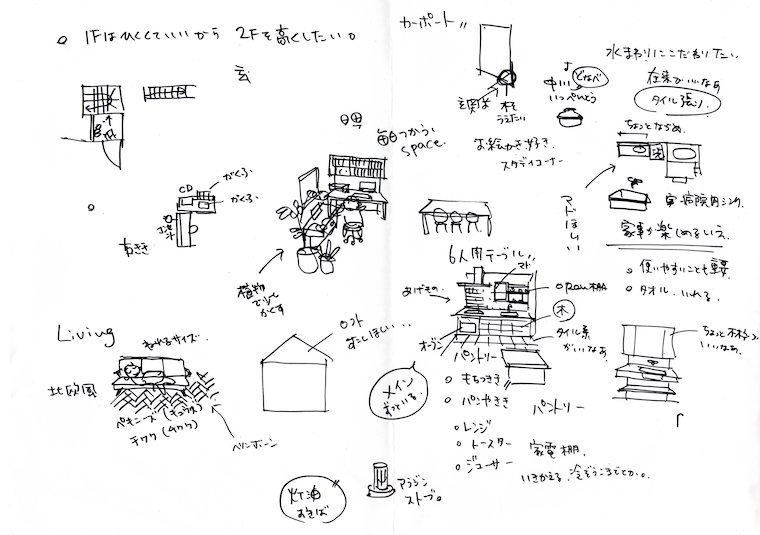 1Fはひくくていいから 2Fを高くしたい。
玄
カーポート
玄関は
木を
うえたい
どなべ
いっぺんとう
水まわりにこだわりたい
在来がいいなぁ
タイル張り
ちょっとならめ
洗
実病院用シンク
家事が楽しめるいえ
使いやすいことも重要
タオル いれる
お絵かき好き
スタディコーナー
つかうい
space
CD
がくふ
がくふ
植物
で少し
かくす
マドほしい
6人用テーブル
マド
open棚
木
タイル系
がいいなぁ
オーブン
パントリー
もちつき
パンやき
レンジ
トースター
ジューサー
パントリー
家電棚
いきかえる 冷ぞうこまでとか。
メイン
Living
ねれるサイズ
北欧風
ペキニーズ
チワワ
ヘリンボーン
ロフト
すこしほしい...
灯油
おきば
アラジン
ストーブ。
いいなぁ。